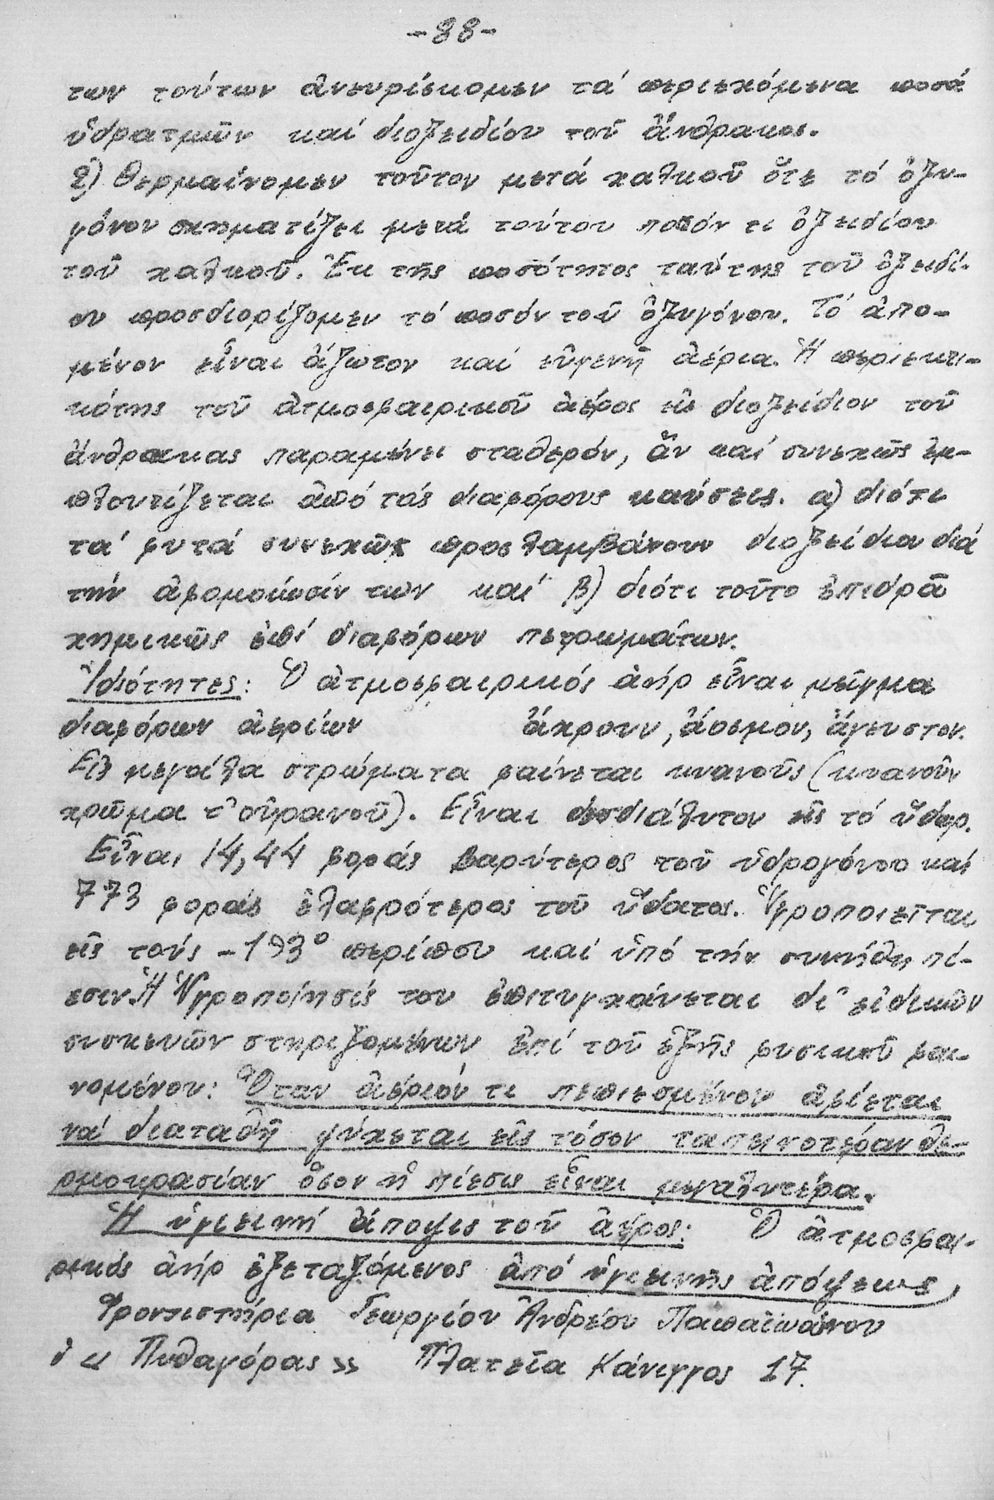 -88-
των τούτων ἀνευρίσκομεν τά περιεχόμενα ποσά
ὑδρατμῶν καί διοξειδίου τοῦ ἄνθρακος.
2) Θερμαίνομεν τοῦτον μετά χαλκοῦ ὅτε τό ὀξυ-
γόνον σχηματίζει μετά τούτου ποσόν τι ὀξειδίου
τοῦ χαλκοῦ. Ἐκ τῆς ποσότητος ταύτης τοῦ ὀξειδί-
ου προσδιορίζομεν τό ποσόν τοῦ ὀξυγόνου. Τό ἀπο-
μένον εἶναι ἄζωτον καί εὐγενῆ ἀέρια. Ἡ περιεκτι-
κότης τοῦ ἀτμοσφαιρικοῦ ἀέρος εἰς διοξείδιον τοῦ
ἄνθρακας παραμένει σταθερόν, ἄν καί συνεχῶς ἐμ-
πλουτίζεται ἀπό τάς διαφόρους καύσεις. α) διότι
τά φυτά συνεχῶς προσλαμβάνουν διοξείδιον διά
τήν ἀφομοίωσίν των καί β) διότι τοῦτο ἐπιδρᾶ
χημικῶς ἐπί διαφόρων πετρωμάτων.
Ἰδιότητες: Ὁ ἀτμοσφαιρικός ἀήρ εἶναι μεῖγμα
διαφόρων ἀερίων ἄχρουν, ἄοσμον, ἄγευστον.
Εἰς μεγάλα στρώματα φαίνεται κυανοῦς (κυανοῦν
χρῶμα τ' οὐρανοῦ). Εἶναι δυσδιάλυτον εἰς τό ὕδωρ.
Εἶναι 14,44 φοράς βαρύτερος τοῦ ὑδρογόνου καί
773 φοράς ἐλαφρότερος τοῦ ὕδατος. Ὑγροποιεῖται
εἰς τούς -193° περίπου καί ὑπό τήν συνήθη πί-
εσιν. Ἡ Ὑγροποίησίς του ἐπιτυγχάνεται δι' εἰδικῶν
συσκευῶν στηριζομένων ἐπί τοῦ ἑξῆς φυσικοῦ φαι-
νομένου: Ὅταν ἀέριόν τι πεπιεσμένον ἀφίεται
νά διαταθῆ ψύχεται εἰς τόσον ταπεινοτέραν θε-
ρμοκρασίαν ὅσον ἡ πίεσις εἶναι μεγαλυτέρα.
Ἡ ὑγιεινή ἄποψις τοῦ ἀέρος: Ὁ ἀτμοσφαι-
ρικός ἀήρ ἐξεταζόμενος ἀπό ὑγιεινῆς ἀπόψεως,
Φροντιστήρια Γεωργίου Ἀνδρέου Παπαϊωάνου
ὁ « Πυθαγόρας » Πλατεῖα Κάνιγγος 17.